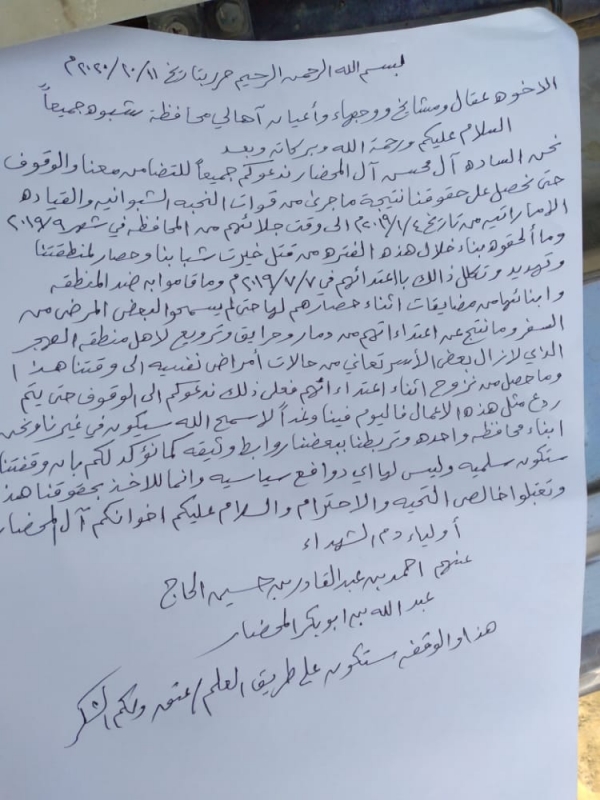 بسم الله الرحمن الرحيم حرر بتاريخ ٢٠٢٠/٢٠/١١م
الاخوه عقال ومشائخ ووجهاء وأعيان آهالي محافظة شبوه جميعاً
السلام عليكم ورحمة الله وبركاته وبعد
نحن الساده آل محسن آل المحضار ندعوكم جميعاً للتضامن معنا والوقوف
حتى نحصل على حقوقنا نتيجة ما جرى من قوات النخبه الشبوانيه والقياده
الاماراتيه من تاريخ ٢٠١٩/١/٤م الى وقت جلائهم من المحافظه في شهر ٢٠١٩/٩
وما ألحقوه بناء خلال هذه الفتره من قتل خيرت شبابنا وحصار لمنطقتنا
وتهديد وتكلل ذالك بااعتدائهم في ٢٠١٩/٧/٧م وما قاموا به ضد المنطقه
وابنائها من مضايقات اثناء حصارهم لها حتى لم يسمحوا لبعض المرضى من
السفر وما نتج عن اعتداءاتهم من دمار وحرايق وترويع لاهل منطقه الهجر
الذي لازال بعض الأسر تعاني من حالات أمراض نفسيه الى وقتنا هذا
وما حصل من نزوح اثناء اعتداءاتهم فعلى ذلك ندعوكم الى الوقوف حتى يتم
ردع مثل هذه الاعمال فاليوم فينا وغداً لاسمح الله سيكون في غيرنا ونحن
ابناء محافظه واحده وتربطنا ببعضنا روابط وثيقه كما نؤكد لكم بان وقفتنا
ستكون سلميه وليس لها اي دوافع سياسيه وانما للاخذ بحقوقنا هذا
وتقبلوا خالص التحيه والاحترام والسلام عليكم اخوانكم آل المحضار
أولياء دم الشهداء
عنهم احمد بن عبدالقادر بن حسين الحاج
عبدالله بن ابوبكر المحضار
هذا والوقفه ستكون على طريق العلم / عتق ولكم الشكر